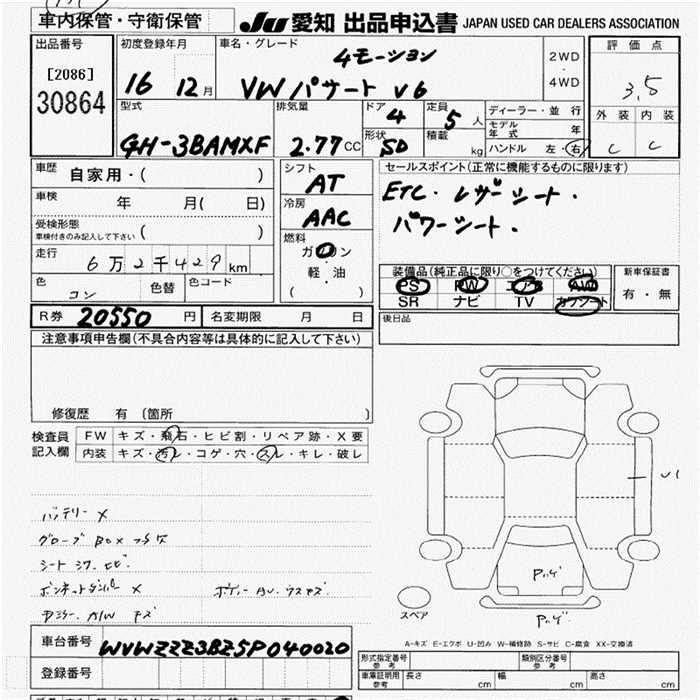 車内保管・守衛保管
JU 愛知 出品申込書 JAPAN USED CAR DEALERS ASSOCIATION
出品番号
[2086]
30864
初度登録年月
16 12 月
車名・グレード
4モーション
VW パサート V6
2WD
・
4WD
評価点
3.5
外装 内装
C C
型式
GH-3BAMXF
排気量
2.77 CC
ドア
4
形状
SD
定員
5 人
積載
kg
ディーラー・並行
モデル年式 年
ハンドル 左・右
車歴
自家用・( )
車検
年 月( 日)
受検形態
車検付きのみ記入して下さい ( )
走行
6万2千429 km
色
コン
色替
色コード
シフト
AT
冷房
AAC
燃料
ガソリン
・
軽・油
( )
セールスポイント(正常に機能するものに限ります)
ETC・レザーシート・
パワーシート・
装備品(純正品に限り○をつけてください)
PS PW エアB AW
SR ナビ TV カワシート
新車保証書
有・無
後日品
R券 20550 円
名変期限 月 日
注意事項申告欄(不具合内容等は具体的に記入して下さい)
修復歴 有 〔箇所 〕
検査員
記入欄
FW キズ・飛石・ヒビ割・リペア跡・X要
内装 キズ・汚レ・コゲ・穴・スレ・キレ・破レ
バッテリー X
グローブ BOX
シート シワ
ボンネットダンパー X
A/W キズ
ボディー
U1
Pハゲ
Pハゲ
スペア
A-キズ E-エクボ U-凹み W-補修跡 S-サビ C-腐食 XX-交換済
車台番号 WVWZZZ3BZ5P040020
登録番号
形式指定番号
参考
類別区分番号
参考
車庫証明用
参考
長さ cm 幅 cm 高さ cm